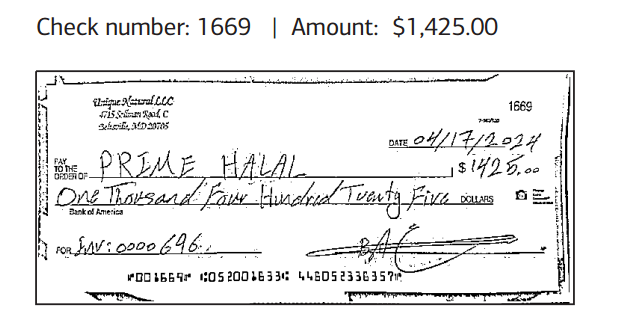 Check number: 1669 | Amount: $1,425.00
Unique Natural LLC
4715 Road, C
Beltsville, MD 20705
1669
DATE 04/17/2024
PAY TO THE ORDER OF PRIME HALAL $ 1425.00
One Thousand Four Hundred Twenty Five DOLLARS
Bank of America
FOR INV: 0000696
⑈001669⑈ ⑆052001633⑆ 446052336357⑈